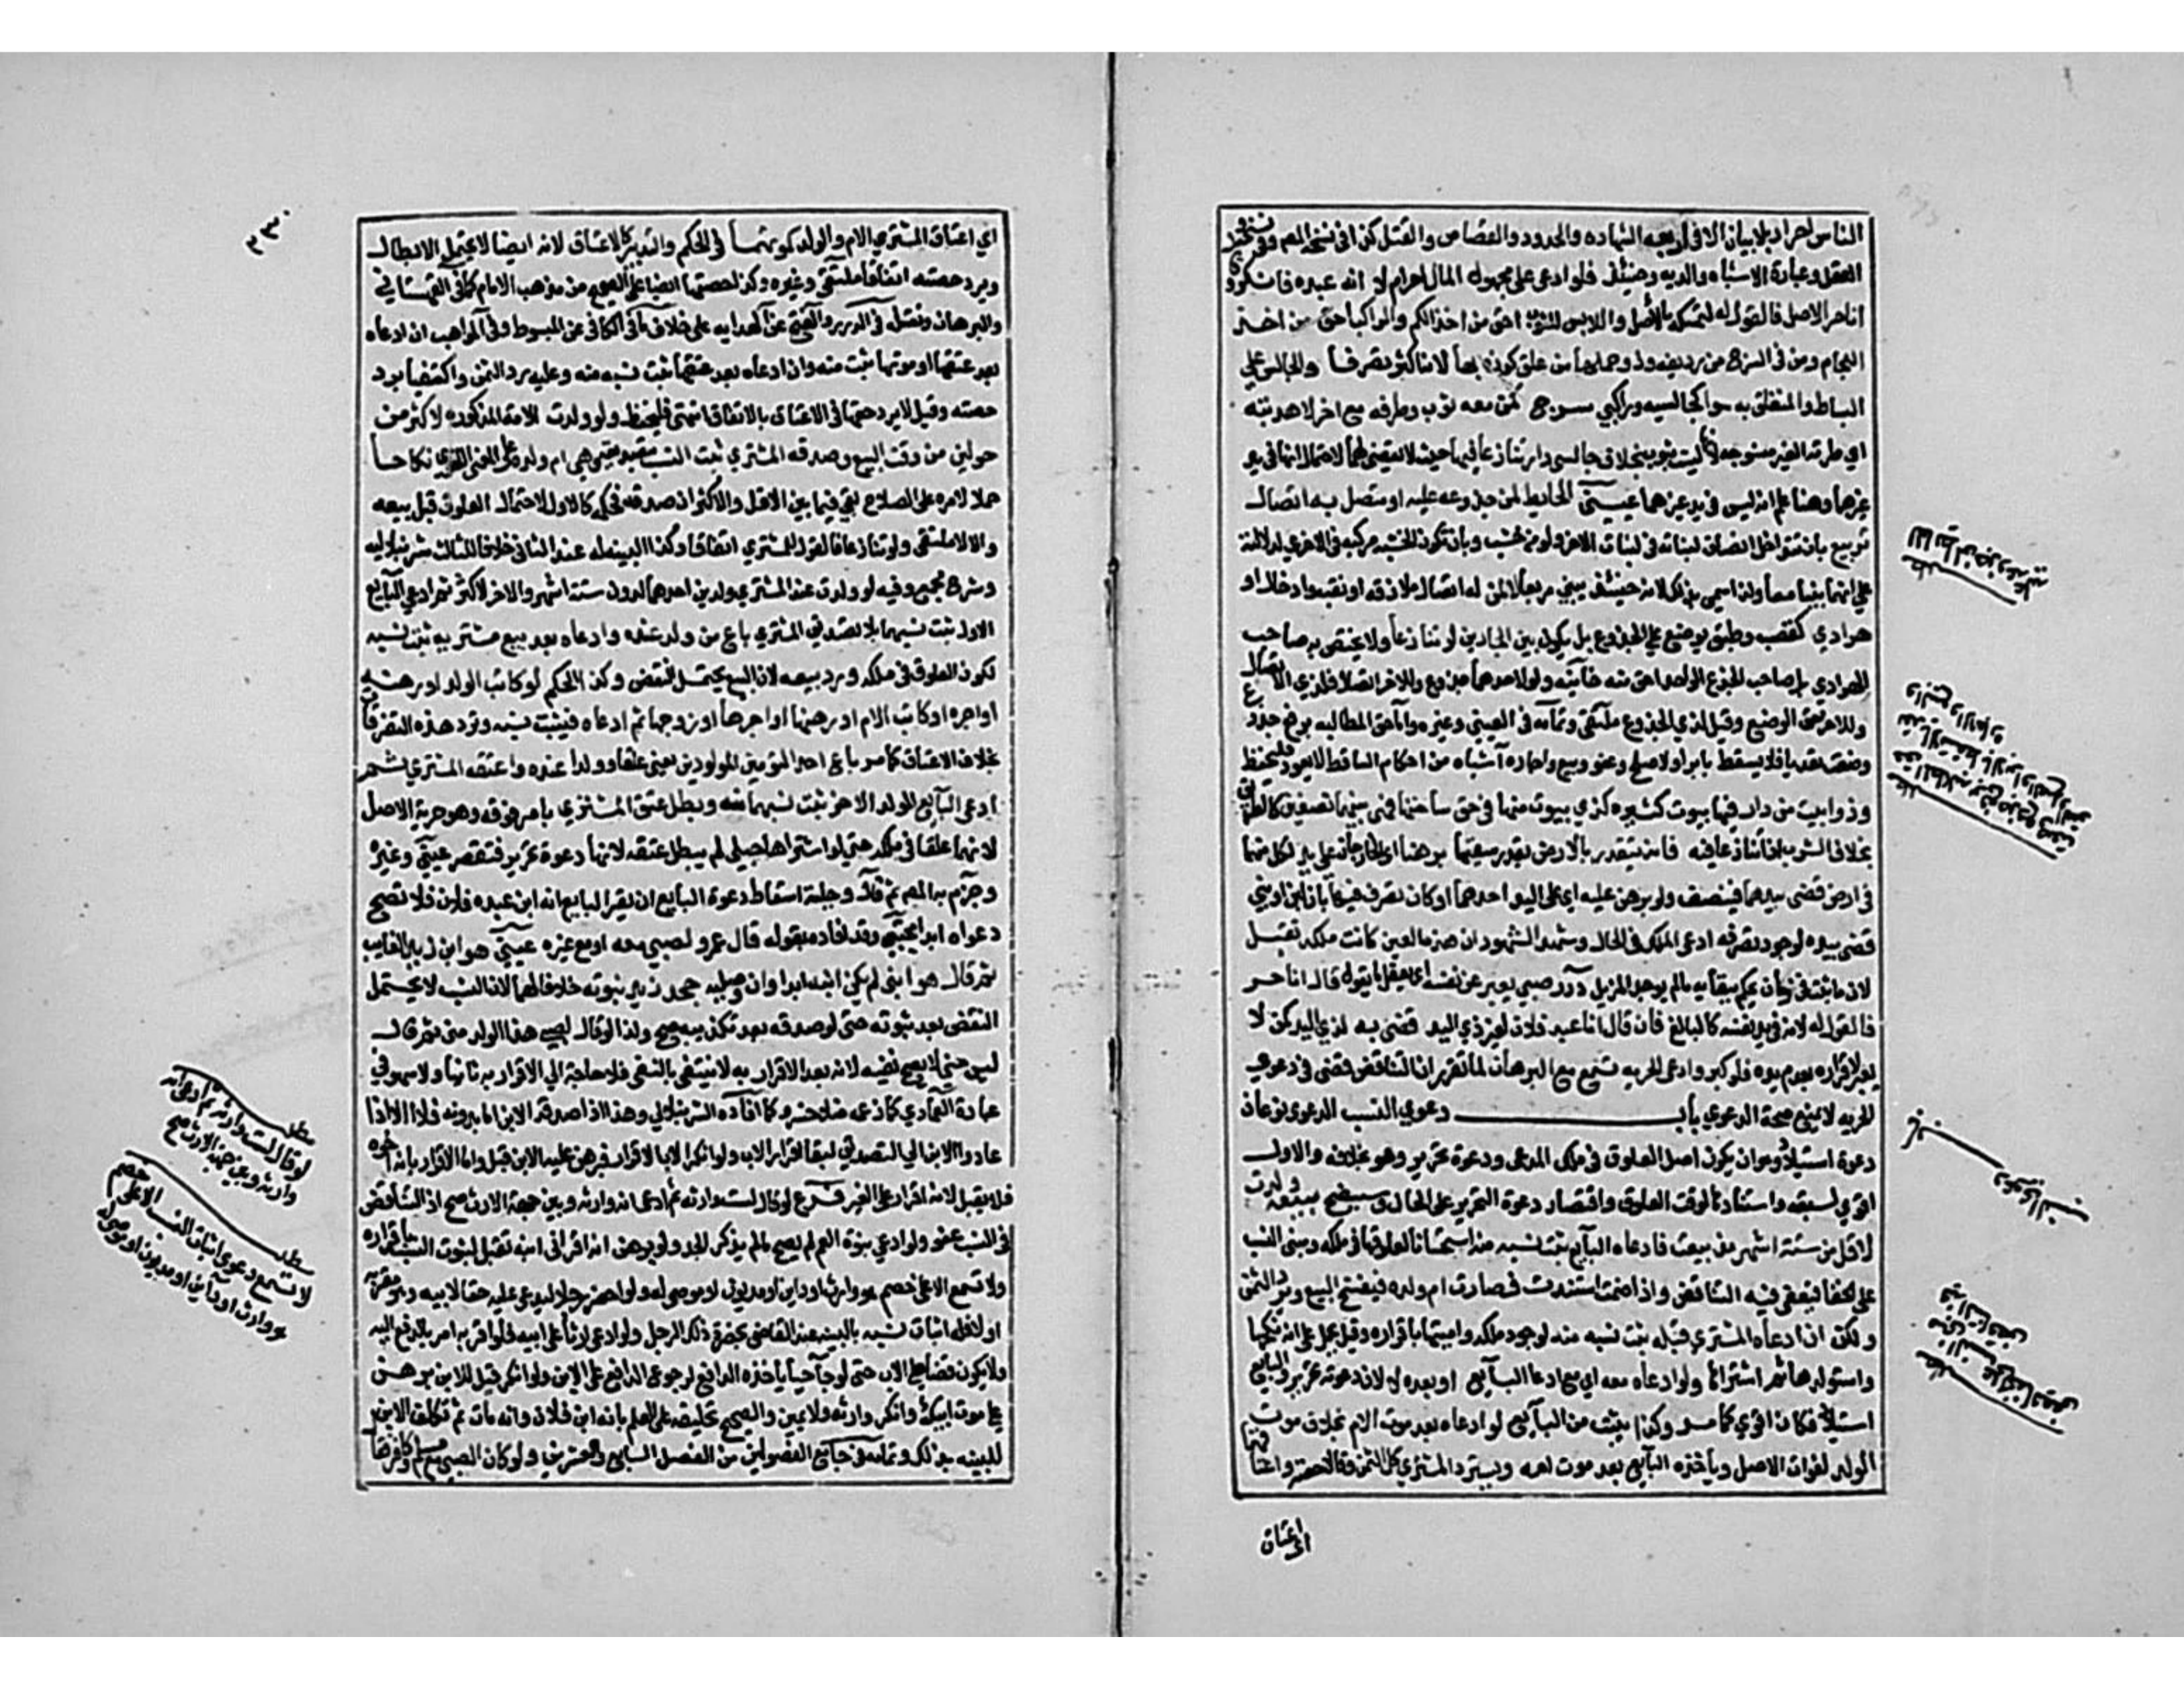 الناس احرار بلا بيان الا في اربعه الشهاده والحدود والقصاص والقتل كذا في نسخه المصنف وفي نسخة
العقل وعبارة الاشباه والديه وحينئذ فلو ادعى على مجهول الحال احرام لا انه عبده فانكر و
انا حر الاصل فالقول له لتمسكه بالاصل واللابس للثوب احق من اخذ الكم والراكب احق من اخذ
اللجام ومن في السرج من رديفه وذو حملها ممن علق كوزه بها لانه اكثر تصرفا والجالس على
البساط والمتعلق به سواء كجالسيه وراكبي سرج كمن معه ثوب وطرفه مع اخر لا هدبته
اي طرته الغير منسوجه لانها ليست بثوب بخلاف جالسي دار تنازعا فيها حيث لا يقضى لهما لاحتمال انها في يد
غيرهما وهنا علم انه ليس في يد غيرهما عيني الحائط لمن جذوعه عليه او متصل به اتصال
تربيع بان تتداخل انصاف لبناته في لبنات الاخر ولو من خشب فبان تكون الخشبه مركبه في الاخرى لدلالته
على انهما بنيا معا ولذا سمي بذلك لانه حينئذ يبنى مربعا لا لمن له اتصال ملازقه او نقب وادخال او
هرادي كقصب وطبق يوضع على الجذوع بل يكون بين الجارين لو تنازعا ولا يختص به صاحب
الهرادي بل صاحب الجذع الواحد احق منه خانيه ولو لاحدهما جذوع وللاخر اتصال فلذي الاتصال
وللاخر حق الوضع وقيل لذي الجذوع ملتقى وتمامه في العيني وغيره واما حق المطالبه برفع جذوع
وضعت تعديا فلا يسقط بابراء ولا صلح وعفو وبيع واجاره اشباه من احكام الساقط لا يعود فليحفظ
وذو بيت من دار فيها بيوت كثيره كذي بيوت منها في حق ساحتها فهي بينهما نصفين كالطريق
بخلاف الشرب اذا تنازعا فيه فانه يقدر بالارض بقدر سقيها برهنا اي الخارجان على يد لكل منهما
في ارض قضى بيدهما فينصف ولو برهن عليه اي على اليد احدهما او كان تصرف فيها بان لبن او بنى
قضى بيده لوجود تصرفه ادعى الملك في الحال وشهد الشهود ان هذه العين كانت ملكه تقبل
لان ما ثبت في زمان يحكم ببقائه ما لم يوجد المزيل درر صبي يعبر عن نفسه اي يعقل ما يقول قال انا حر
فالقول له لانه في يد نفسه كالبالغ فان قال انا عبد فلان لغير ذي اليد قضى به لذي اليد كمن لا
يعبر لاقراره بعدم يده فلو كبر وادعى الحريه تسمع مع البرهان لما تقرر ان التناقض قضى في دعوى
الحريه لا يمنع صحة الدعوي باب دعوي النسب الدعوي نوعان
دعوة استيلاد وهو ان يكون اصل العلوق في ملك المدعى ودعوة تحرير وهو بخلافه والاول
اقوي لسبقه واستنادها لوقت العلوق واقتصار دعوة التحرير على الحال مبيعة ولدت
لاقل من ستة اشهر منذ بيعت فادعاه البائع ثبت نسبه منه استحسانا لعلوقها في ملكه ومبنى النسب
على الخفا فيعفى فيه التناقض واذا صحت استندت فصارت ام ولده فيفسخ البيع ويرد الثمن
ولكن اذا ادعاه المشتري قبله ثبت نسبه منه لوجود ملكه واميتها باقراره وقيل يحمل على انه نكحها
واستولدها ثم اشتراها ولو ادعاه معه اي مع ادعاء البائع او بعده لا لان دعوته تحرير والبائع
استيلاد فكان اقوي كما مر وكذا يثبت من البائع لو ادعاه بعد موت الام بخلاف موت
الولد لفوات الاصل وياخذه البائع بعد موت امه ويسترد المشتري كل الثمن وقالا حصته واعتاقهما
اعتاق
الحائط لمن جذوعه عليه
دعوي النسب
٣٣٠
اي اعتاق المشتري الام والولد كموتهما في الحكم والتدبير كالاعتاق لانه ايضا لا يحتمل الابطال
ويرد حصته اتفاقا ملتقى وغيره وكذا حصتها ايضا على الصحيح من مذهب الامام كما في القهستاني
والبرهان ونقله في الدرر والمنح عن الهدايه على خلاف ما في الكافي عن المبسوط وفي المواهب ان ادعاه
بعد عتقها او موتها ثبت منه وان ادعاه بعد عتقها ثبت نسبه منه وعليه رد الثمن واكتفيا برد
حصته وقيل لا يرد حصتها في الاعتاق بالاتفاق انتهى فليحفظ ولو ولدت الامه المذكوره لاكثر من
حولين من وقت البيع وصدقه المشتري ثبت النسب بتصديقه وهي ام ولده على المعنى اللغوي نكاحا
حملا لامره على الصلاح بقي فيما بين الاقل والاكثر ان صدقه فحكمه كالاول لاحتمال العلوق قبل بيعه
والا لا ملتقى ولو تنازعا فالقول للمشتري اتفاقا وكذا البينه له عند الثاني خلافا للثالث شرنبلاليه
وشرح مجمع وفيه لو ولدت عند المشتري ولدين احدهما لدون ستة اشهر والاخر لاكثر ثم ادعى البائع
الاول ثبت نسبهما بلا تصديق المشتري باع من ولد عنده وادعاه بعد بيع مشتريه ثبت نسبه
لكون العلوق في ملكه ورد بيعه لان البيع يحتمل النقض وكذا الحكم لو كاتب الولد او رهنه
او اجره او كاتب الام او رهنها او اجرها او زوجها ثم ادعاه فيثبت نسبه وترد هذه التصرفات
بخلاف الاعتاق كما مر باع احد التوءمين المولودين يعني علقا وولدا عنده واعتقه المشتري ثم
ادعى البائع الولد الاخر ثبت نسبهما منه وبطل عتق المشتري بامر فوقه وهو حرية الاصل
لانهما علقا في ملكه حتى لو اشتراها حبلى لم يبطل عتقه لانها دعوة تحرير فتقتصر عيني وغيره
وجزم به المصنف ثم قال وحيلة اسقاط دعوة البائع ان يقر البائع انه ابن عبده فلان فلا تصح
دعواه ابدا مجتبى وقد افاده بقوله قال عمرو لصبي معه او مع غيره عيني هو ابن زيد الغايب
ثم قال هو ابني لم يكن ابنه ابدا وان وصليه جحد زيد بنوته خلافا لهما لان النسب لا يحتمل
النقض بعد ثبوته حتى لو صدقه بعد تكذيبه صح ولذا لو قال لصبي هذا الولد مني ثم قال
ليس مني لا يصح نفيه لانه بعد الاقرار به لا ينتفي بالنفي فلا حاجة الي الاقرار به ثانيا ولا سهو في
عبارة العمادي كما زعمه منلا خسرو كما افاده الشرنبلالي وهذا اذا صدقه الابن اما بدونه فلا الا اذا
عاد الابن الي التصديق لبقاء اقرار الاب ولو انكر الاب الاقرار فبرهن عليه الابن قبل واما الاقرار بانه اخوه
فلا يقبل لانه اقرار على الغير فرع لو قال لست وارثه ثم ادعى انه وارثه وبين جهة الارث صح اذ التناقض
في النسب عفو ولو ادعى بنوة العم لم يصح ما لم يذكر الجد ولو برهن انه اقر اني ابنه تقبل لثبوت النسب باقراره
ولا تسمع الا على خصم هو وارث او داين او مديون او موصى له ولو احضر رجلا ليدعي عليه حقا لابيه وهو مقر به
او لا فله اثبات نسبه بالبينه عند القاضي بحضرة ذلك الرجل ولو ادعى ارثا على ابيه فلو اقر به امر بالدفع اليه
ولا يكون قضا على الاب حتى لو جا حيا ياخذه من الدافع ويرجع الدافع على الابن ولو انكر قيل للابن برهن
على موت ابيك وانك وارثه ولا يمين والصحيح تحليفه على العلم بانه ابن فلان وانه مات ثم تكلف الابن
للبينه بذلك وتمامه في جامع الفصولين من الفصل السابع والعشرين ولو كان الصبي مع مسلم وكافر فقال
مطلب
لو قال لست وارثه ثم ادعى انه
وارثه وبين جهة الارث صح
مطلب
لا تسمع دعوي اثبات النسب الا على خصم
هو وارث او داين او مديون او موصى له